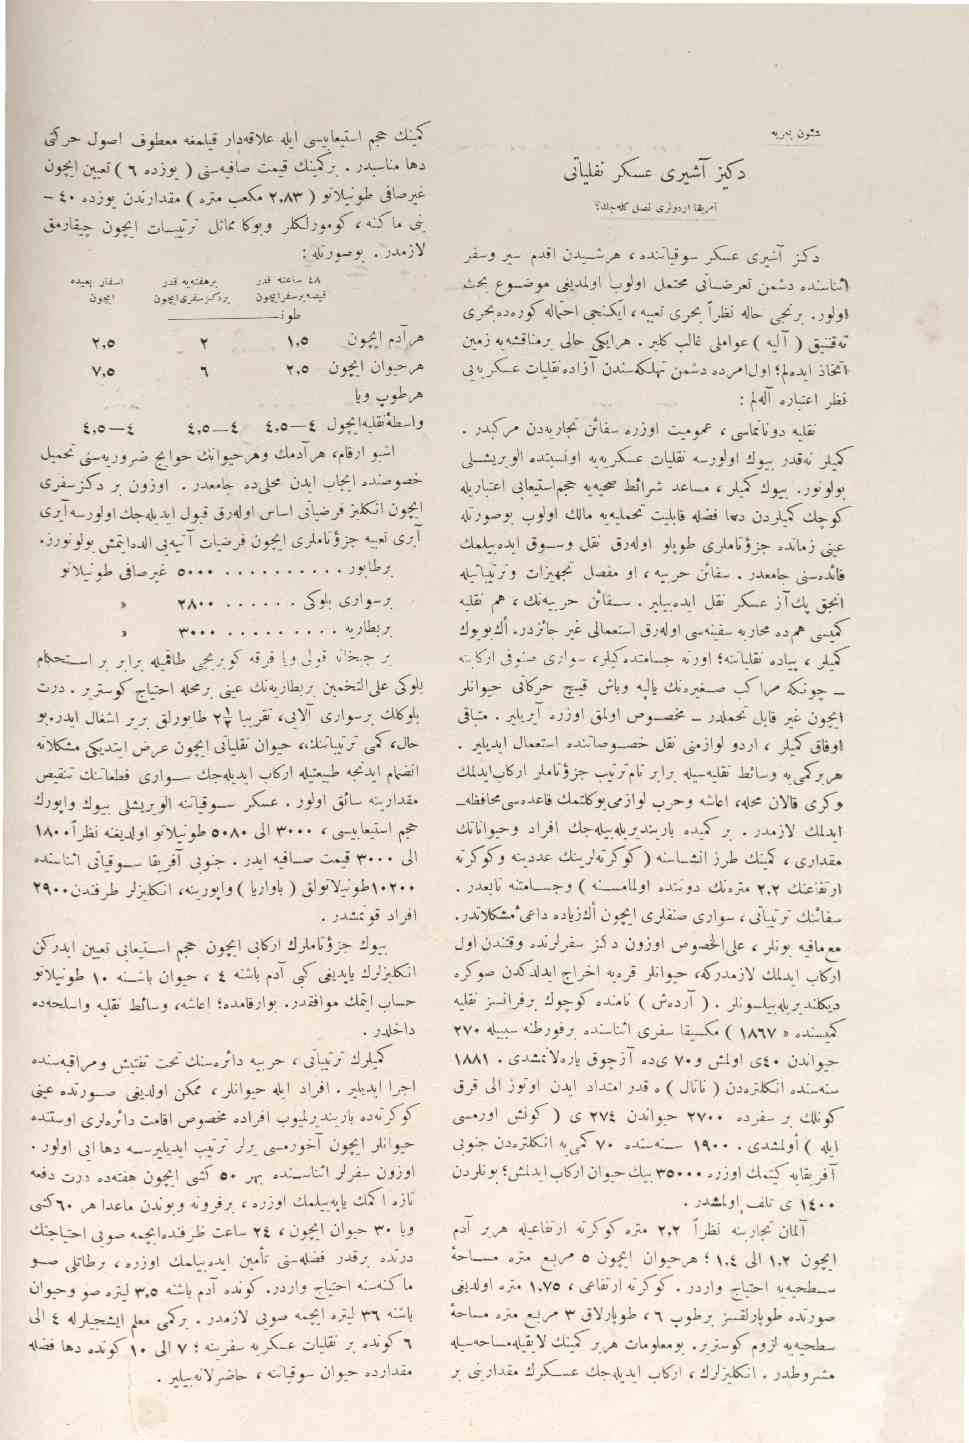 شئون بحریه
دكیز آشیری عسكر نقلیاتی
آمریقا اردولری نصل كله‌جك؟
دكز آشیری عسكر سوقیاتنده ، هرشیدن اقدم سیر وسفر
اثناسنده دشمن تعرضاتی محتمل اولوب اولمدیغی موضوع بحث
اولور. برنجی حاله نظراً بحری تعبیه ، ایكنجی احتماله كوره‌ده بحری
ته‌قنیق ( آلیه ) عواملی غالب كلیر. هرایكی حالی برمناقشه‌یه زمین
اتخاذ ایده‌لم؛ اول‌امرده دشمن تهلكه‌سندن آزاده نقلیات عسكریه‌یی
نظر اعتباره آله‌لم :
نقلیه دوناتماسی ، عمومیت اوزره سفائن تجاریه‌دن مركبدر .
كمیلر نه‌قدر بیوك اولورسه نقلیات عسكریه‌یه اونسبتده الویریشلی
بولونور. بیوك كمیلر ، مساعد شرائط صحیه‌یه حجم‌استیعابی اعتباریله
كوچك كمیلردن دها فضله قابلیت تحملیه‌یه مالك اولوب بوصورتله
عینی زمانده جزؤتاملری طوپلو اوله‌رق نقل وسوق ایده‌بیلمك
فائده‌سنی جامعدر. سفائن حربیه ، او مفصل تجهیزات وترتیباتیله
انجق پك‌آز عسكر نقل ایده‌بیلیر. سفائن حربیه‌نك ، هم نقلیه
كمیسی هم‌ده محاربه سفینه‌سی اوله‌رق استعمالی غیر جائزدر. اك‌بویوك
كمیلر ، پیاده نقلیاتنه؛ اورته جسامتده‌كیلر ، سواری صنوفی اركابنه
ـ چونكه مراكب صغیره‌نك یالپه وباش قیچ حركاتی حیوانلر
ایچون غیر قابل تحملدر ـ مخصوص اولمق اوزره آیریلیر. متباقی
اوفاق كمیلر ، اردو لوازمنی نقل خصوصاتنده استعمال ایدیلیر .
هربركمی‌یه وسائط نقلیه‌سیله برابر تام‌ترتیب جزؤتاملر اركاب‌ایدلمك
وكری قالان محله، اعاشه وحرب لوازمی‌یوكلتمك قاعده‌سی‌محافظه‌ـ
ایدلمك لازمدر. بر كمیده باریندیریله‌بیله‌جك افراد وحیواناتك
مقداری ، كمینك طرز انشاسنه ( كوكرته‌لرینك عددینه وكوكرته
ارتفاعنك ۲٫۲ متره‌نك دوننده اولمامسنه ) وجسامتنه تابعدر .
سفائنك ترتیباتی ، سواری صنفلری ایچون اك‌زیاده داعی‌ٔ مشكلاتدر.
مع‌مافیه بونلر ، علی‌الخصوص اوزون دكز سفرلرنده وقتندن اول
اركاب ایدلمك لازمدركه، حیوانلر قره‌یه اخراج ایدلدكدن صوكره
دیكلندیریله‌بیلسونلر . ( آردەش ) نامنده كوچوك برفرانسز نقلیه
كمیسنده « ۱۸٦۷ ) مكسیقا سفری اثناسنده برفورطنه سببیله ۲۷۰
حیواندن ٤۰ی اولمش و۷۰ ی‌ده آزچوق یاره‌لانمشدی. ۱۸۸۱
سنه‌سنده انكلتره‌دن ( ناتال ) ه قدر امتداد ایدن اوتوز الی قرق
كونلك بر سفرده ۲۷۰۰ حیواندن ۲۷٤ ی ( كونش اورمسی
ایله ) اولمشدی. ۱۹۰۰ سنه‌سنده ۷۰ كمی‌یه انكلتره‌دن جنوبی
آفریقایه كیتمك اوزره ۳۵۰۰۰ بیك حیوان اركاب ایدلمش؛ بونلردن
۱٤۰۰ ی تلف اولمشدر .
آلمان تجاربنه نظراً ۲٫۲ متره كوكرته ارتفاعیله هربر آدم
ایچون ۱٫۲ الی ۱٫٤ ؛ هرحیوان ایچون ۵ مربع متره مساحهٔ
سطحیه‌یه احتیاج واردر. كوكرته ارتفاعی ، ۱٫۷۵ متره اولدیغی
صورتده طوپارلقسز برطوپ ٦ ، طوپارلاق ۳ مربع متره مساحهٔ
سطحیه‌یه لزوم كوستریر. بومعلومات هربر كمینك لایقیله‌مساحه‌سیله
مشروطدر . انكلیزلرك ، اركاب ایدیله‌جك عسكرك مقدارینی بر
كمینك حجم استیعابیسی ایله علاقه‌دار قیلمغه معطوف اصول حركتی
دها مناسبدر . بركمینك قیمت صافیه‌سنی ( یوزده ٦ ) تعیین ایچون
غیرصافی طونیلاتو ( ۲٫۸۳ مكعب متره ) مقدارندن یوزده ٤۰ ـ
نی ماكنه ، كومورلكلر وبوكا مماثل ترتیبات ایچون چیقارمق
لازمدر . بوصورتله :
٤۸ ساعته قدر برهفته‌یه قدر اسفار بعیده
قیصه‌برسفرایچون بردكزسفری‌ایچون ایچون
طونـ
هرآدم ایچون ۱٫۵ ۲ ۲٫۵
هرحیوان ایچون ۲٫۵ ٦ ۷٫۵
هرطوپ ویا
واسطهٔ‌نقلیه‌ایچون ٤ـ٤٫۵ ٤ـ٤٫۵ ٤ـ٤٫۵
اشبو ارقام، هرآدمك وهرحیوانك حوایج ضروریه‌سنی تحمیل
خصوصنده ایجاب ایدن محلی‌ده جامعدر . اوزون بر دكزسفری
ایچون انكلیز فرضیاتی اساس اوله‌رق قبول ایدیله‌جك اولورسه‌آیری
آیری تعبیه جزؤتاملری ایچون فرضیات آتیه‌یی الده‌ایتمش بولونورز.
برطابور . . . . . . . . . . ۵۰۰۰ غیرصافی طونیلاتو
برسواری بلوكی . . . . . . ۲۸۰۰ »
بربطاریه . . . . . . . . . ۳۰۰۰ »
بر جبخانه قولی ویا فرقه كوپریجی طاقمیله برابر بر استحكام
بلوكی علی‌التخمین بربطاریه‌نك عینی برمحله احتیاج كوستریر. درت
بلوكلك برسواری آلایی، تقریبا ۲¼ طابورلق بریر اشغال ایدر.بو
حال، كمی ترتیباتنك، حیوان نقلیاتی ایچون عرض ایتدیكی مشكلاته
انضمام ایدنجه طبیعتیله اركاب ایدیله‌جك سواری قطعاتنك تنقیص
مقدارینه سائق اولور . عسكر سوقیاتنه الویریشلی بیوك واپورك
حجم استیعابیسی ، ۳۰۰۰ الی ۵۰۸۰ طونیلاتو اولدیغنه نظراً ۱۸۰۰
الی ۳۰۰۰ قیمت صافیه ایدر. جنوبی آفریقا سوقیاتی اثناسنده
۱۰۲۰۰طونیلاتولق ( باواریا ) واپورینه، انكلیزلر طرفندن۲۹۰۰
افراد قونمشدر .
بیوك جزؤتاملرك اركابی ایچون حجم استیعابی تعیین ایدركن
انكلیزلرك یاپدیغی كبی آدم باشنه ٤ ، حیوان باشنه ۱۰ طونیلاتو
حساب ایتمك موافقدر. بوارقامده؛ اعاشه، وسائط نقلیه واسلحه‌ده
داخلدر .
كمیلرك ترتیباتی ، حربیه دائره‌سنك تحت تفتیش ومراقبه‌سنده
اجرا ایدیلیر. افراد ایله حیوانلر ، ممكن اولدیغی صورتده عینی
كوكرته‌ده باریندیرلمیوب افراده مخصوص اقامت دائره‌لری اوستنده
حیوانلر ایچون آخورمسی یرلر ترتیب ایدیلیرسه دها ایی اولور .
اوزون سفرلر اثناسنده بهر ۵۰ كشی ایچون هفته‌ده درت دفعه
تازه اكمك یاپه‌بیلمك اوزره ، برفرونه وبوندن ماعدا هر ٦۰كشی
ویا ۳۰ حیوان ایچون ، ۲٤ ساعت ظرفنده‌ایچمه صویی احتیاجنك
درتده برقدر فضله‌سنی تأمین ایده‌بیلمك اوزره ، برطاتلی صو
ماكنه‌سنه احتیاج واردر. كونده آدم باشنه ۳٫۵ لیتره صو وحیوان
باشنه ۳٦ لیتره ایچمه صویی لازمدر. بركمی معلم ایشجیلرله ٤ الی
٦ كونده بر نقلیات عسكریه سفرینه ؛ ۷ الی ۱۰ كونده دها فضله
مقدارده حیوان سوقیاتنه ، حاضرلانه‌بیلیر .